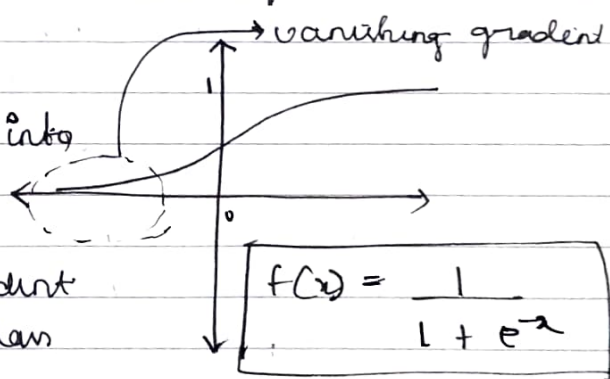 vanishing gradient
1
into
0
f(x) = 1 / 1 + e^-x